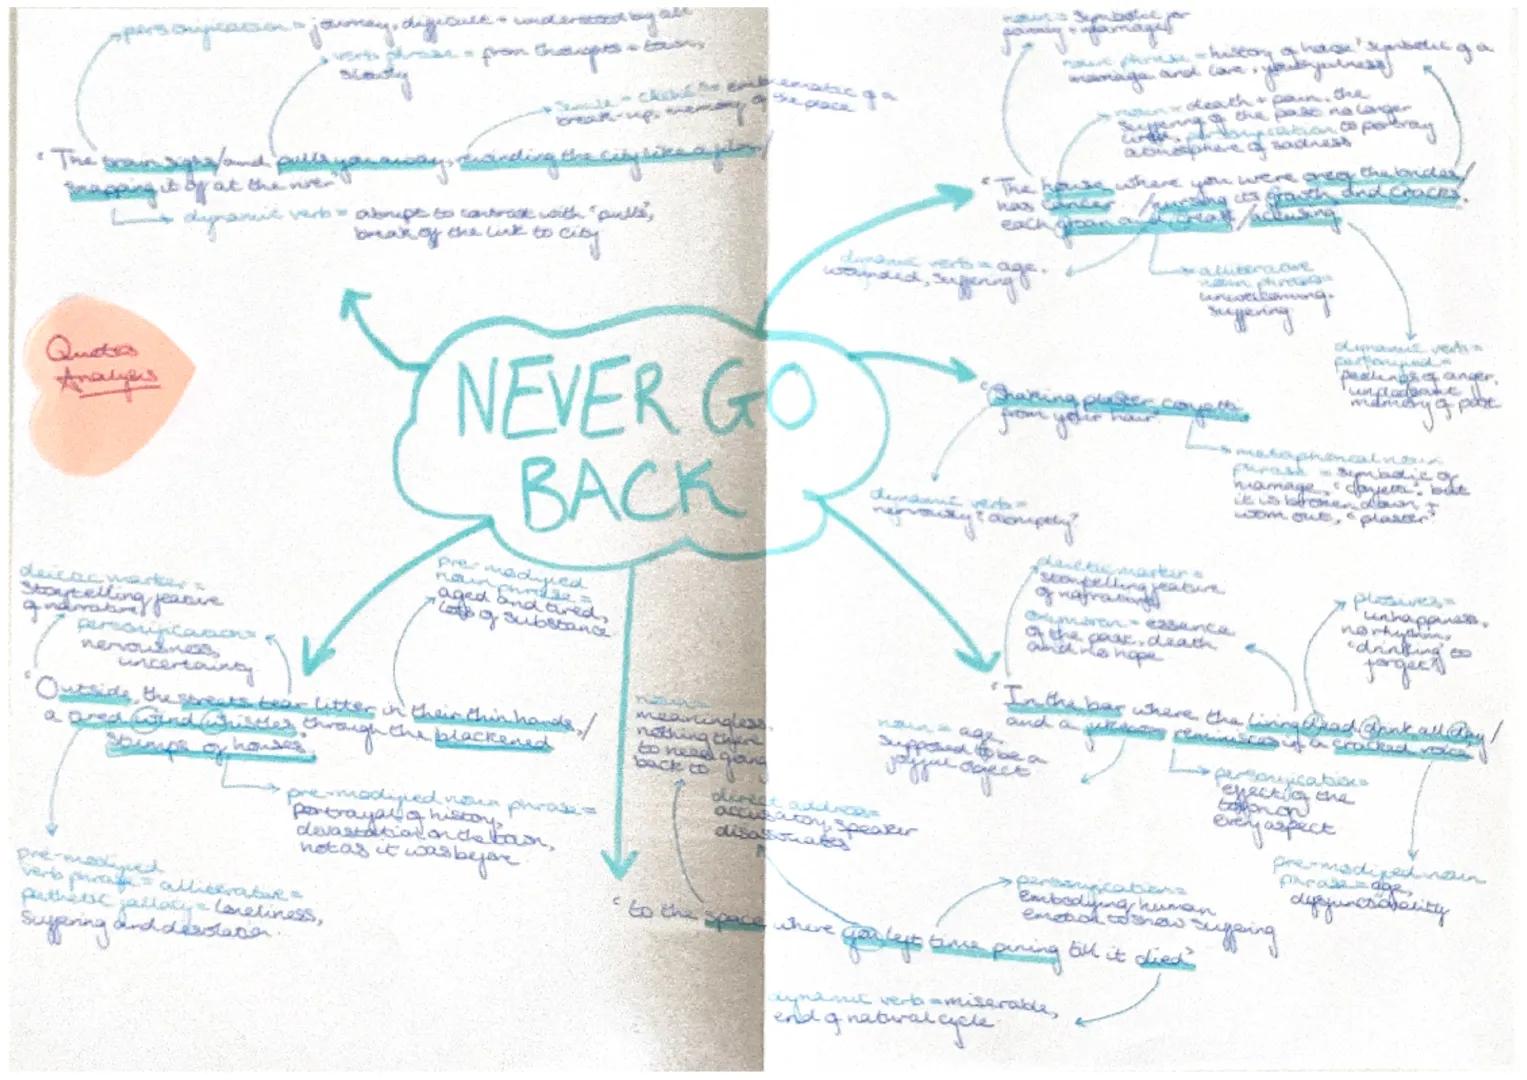 personification = journey, difficult + understood by all
verb phrase = from thoughts + town,
slowly
simile = cliché so emblematic of a
break-up, memory of the place
"The train sighs/and pulls you away, rewinding the city like a film/
snapping it off at the river"
dynamic verb = abrupt to contrast with "pulls",
break of the link to city
Quotes
Analysis
NEVER GO
BACK
noun = symbolic for
family + marriage
noun phrase = history of house? symbolic of a
marriage and love, youthfulness
noun = death + pain, the
suffering of the past no longer
personification to portray
atmosphere of sadness
"The house where you were one of the brides/
has cancer /nursing its growth and cracks,
each groan and creak /accusing
dynamic verb = age,
wounded, suffering
alliterative
noun phrase =
unwelcoming,
suffering
dynamic verb =
personified =
feelings of anger,
unpleasant
memory of past
"Shaking plaster confetti
from your hair"
dynamic verb =
nervously? abruptly?
metaphorical noun
phrase = symbolic of
marriage, "confetti", but
it is broken down +
worn out, "plaster"
deictic marker =
storytelling feature
of narrative
personification =
nervousness,
uncertainty
pre-modified
noun phrase =
aged and tired,
loss of substance
"Outside, the streets tear litter in their thin hands,/
a tired wind whistles through the blackened
stumps of houses"
pre-modified noun phrase =
portrayal of history,
devastation on the town,
not as it was before
pre-modified
verb phrase = alliterative =
pathetic fallacy = loneliness,
suffering and desolation
noun =
meaningless,
nothing there
to need going
back to
direct address =
accusatory, speaker
disassociates
"to the space where you left time pining till it died"
personification =
embodying human
emotion to show suffering
dynamic verb = miserable,
end of natural cycle
deictic marker =
storytelling feature
of narrative
oxymoron = essence
of the past, death
and no hope
plosives =
unhappiness,
no rhythm,
'drinking' to
forget?
"In the bar where the living dead drink all day/
and a jukebox reminisces in a cracked voice"
noun = age,
supposed to be a
joyful object
personification =
effect of the
town on
every aspect
pre-modified noun
phrase = age,
dysfunctionality